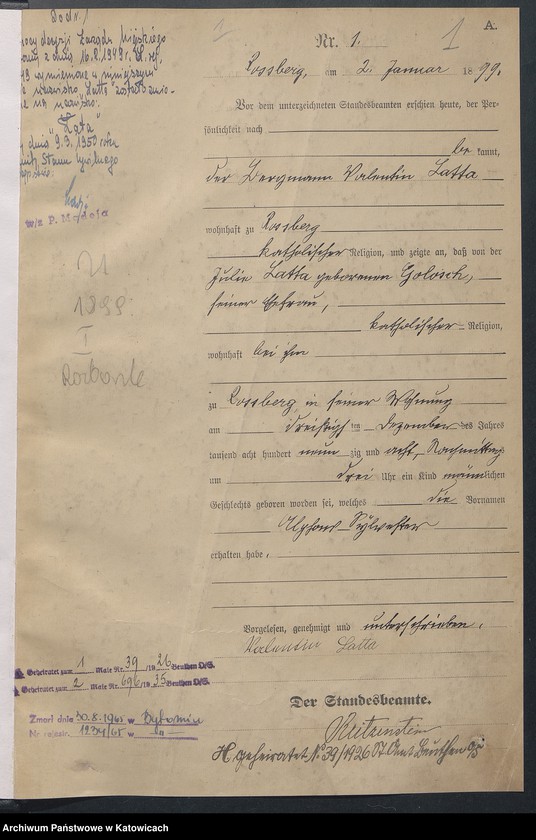 Do nr. 1
mocy decyzji Zarządu Miejskiego
z dnia 16.2.1949 r.
wymienione w niniejszym
nazwisko "Latta" zostało zmie-
na nazwisko:
"Łata"
dnia 9.3.1950 roku
Stanu Cywilnego
w/z P. Mandela
U
1899
I
Rozbark
A.
1
Nr. 1.
Rossberg, am 2. Januar 1899.
Vor dem unterzeichneten Standesbeamten erschien heute, der Per-
sönlichkeit nach
be kannt,
der Bergmann Valentin Latta
wohnhaft zu Rossberg
katholischer Religion, und zeigte an, daß von der
Julie Latta geborenen Golosch,
seiner Ehefrau,
katholischer Religion,
wohnhaft bei ihm
zu Rossberg, in seiner Wohnung
am dreißigsten Dezember des Jahres
tausend acht hundert neun zig und acht, Nachmittags
um drei Uhr ein Kind männlichen
Geschlechts geboren worden sei, welches die Vornamen
Alphons Sylvester
erhalten habe.
Vorgelesen, genehmigt und unterschrieben.
Valentin Latta
A Geheiratet zum 1 Male Nr. 39/1926 Beuthen O/S.
A Geheiratet zum 2 Male Nr. 696/1935 Beuthen O/S.
Zmarł dnia 30.8.1965 w Bytomiu
Nr rejestr. 1234/65 w
Der Standesbeamte.
Reitzenstein
H geheiratet No 39/1926 St. Amt Beuthen O/S
Archiwum Państwowe w Katowicach